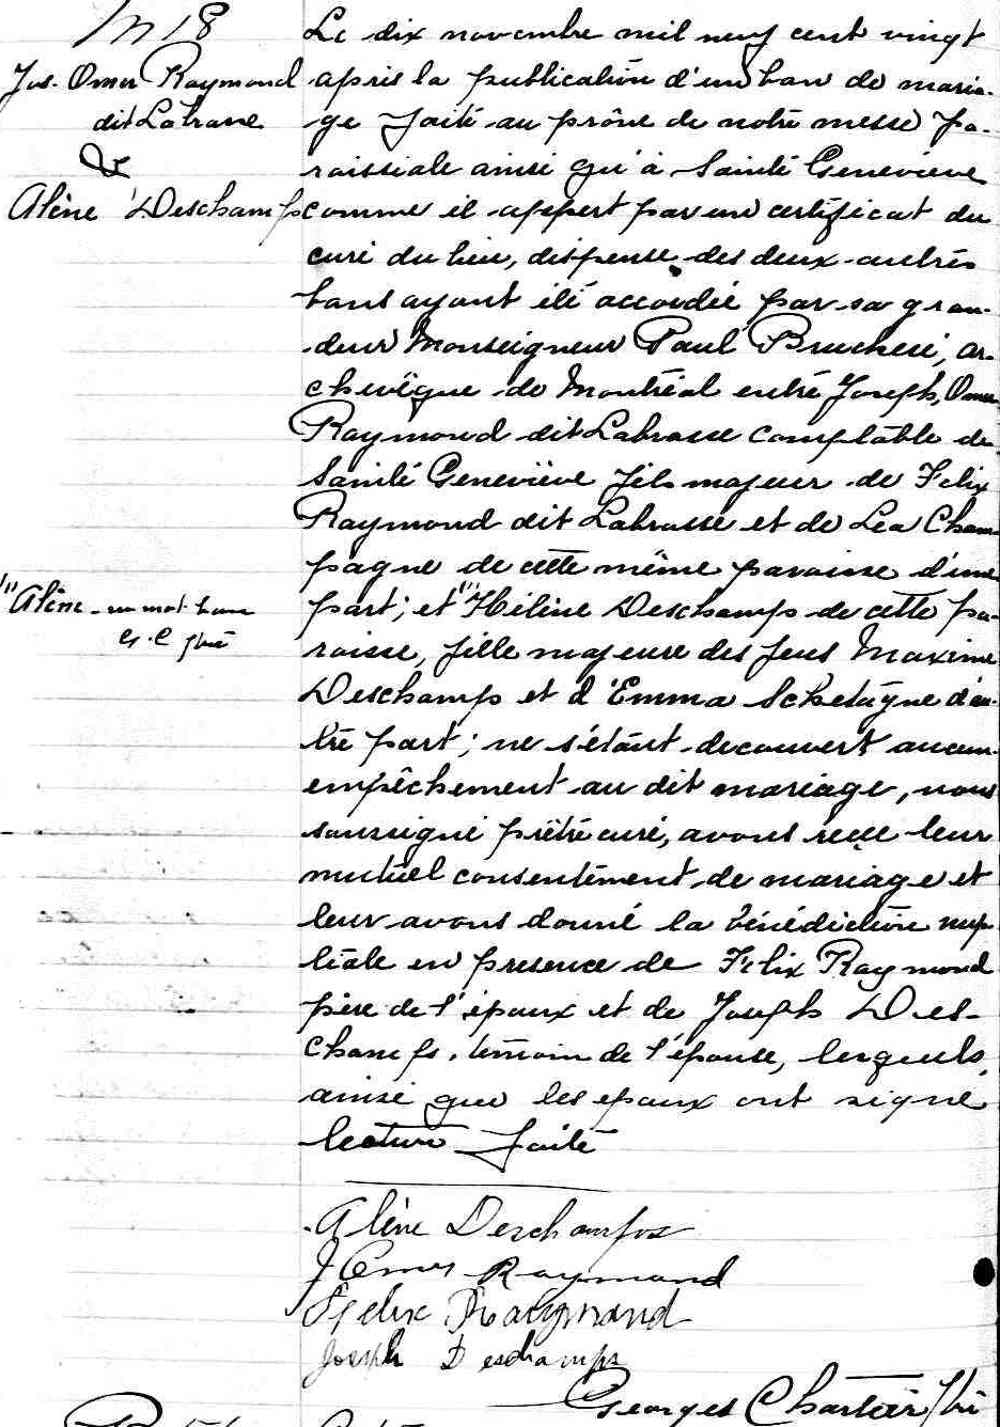 M 18
Jos. Omer Raymond
dit Labrasse
&
Alène Deschamps
Le dix novembre mil neuf cent vingt
après la publication d'un ban de maria-
ge faite au prône de notre messe pa-
roissiale ainsi qu'à Sainte Geneviève
comme il appert par un certificat du
curé du lieu, dispense des deux autres
bans ayant été accordée par sa gran-
deur Monseigneur Paul Bruchési, ar-
chevêque de Montréal entre Joseph, Omer
Raymond dit Labrasse comptable de
Sainte Geneviève fils majeur de Felix
Raymond dit Labrasse et de Lea Cham-
pagne de cette même paroisse d'une
"Alène - un mot
part; et "Hélène Deschamps de cette pa-
G. C. ptre
roisse, fille majeure des feus Maxime
Deschamps et d'Emma Schetagne d'au-
tre part; ne s'étant decouvert aucun
empêchement au dit mariage, nous
soussigné prêtre curé, avons reçu leur
mutuel consentement de mariage et
leur avons donné la bénédiction nup
tiale en presence de Felix Raymond
père de l'époux et de Joseph Des-
champs, témoin de l'épouse, lesquels,
ainsi que les epoux ont signé
lecture faite
Alène Deschamps
J Omer Raymond
Felix Raymond
Joseph Deschamps
Georges Chartier Ptre